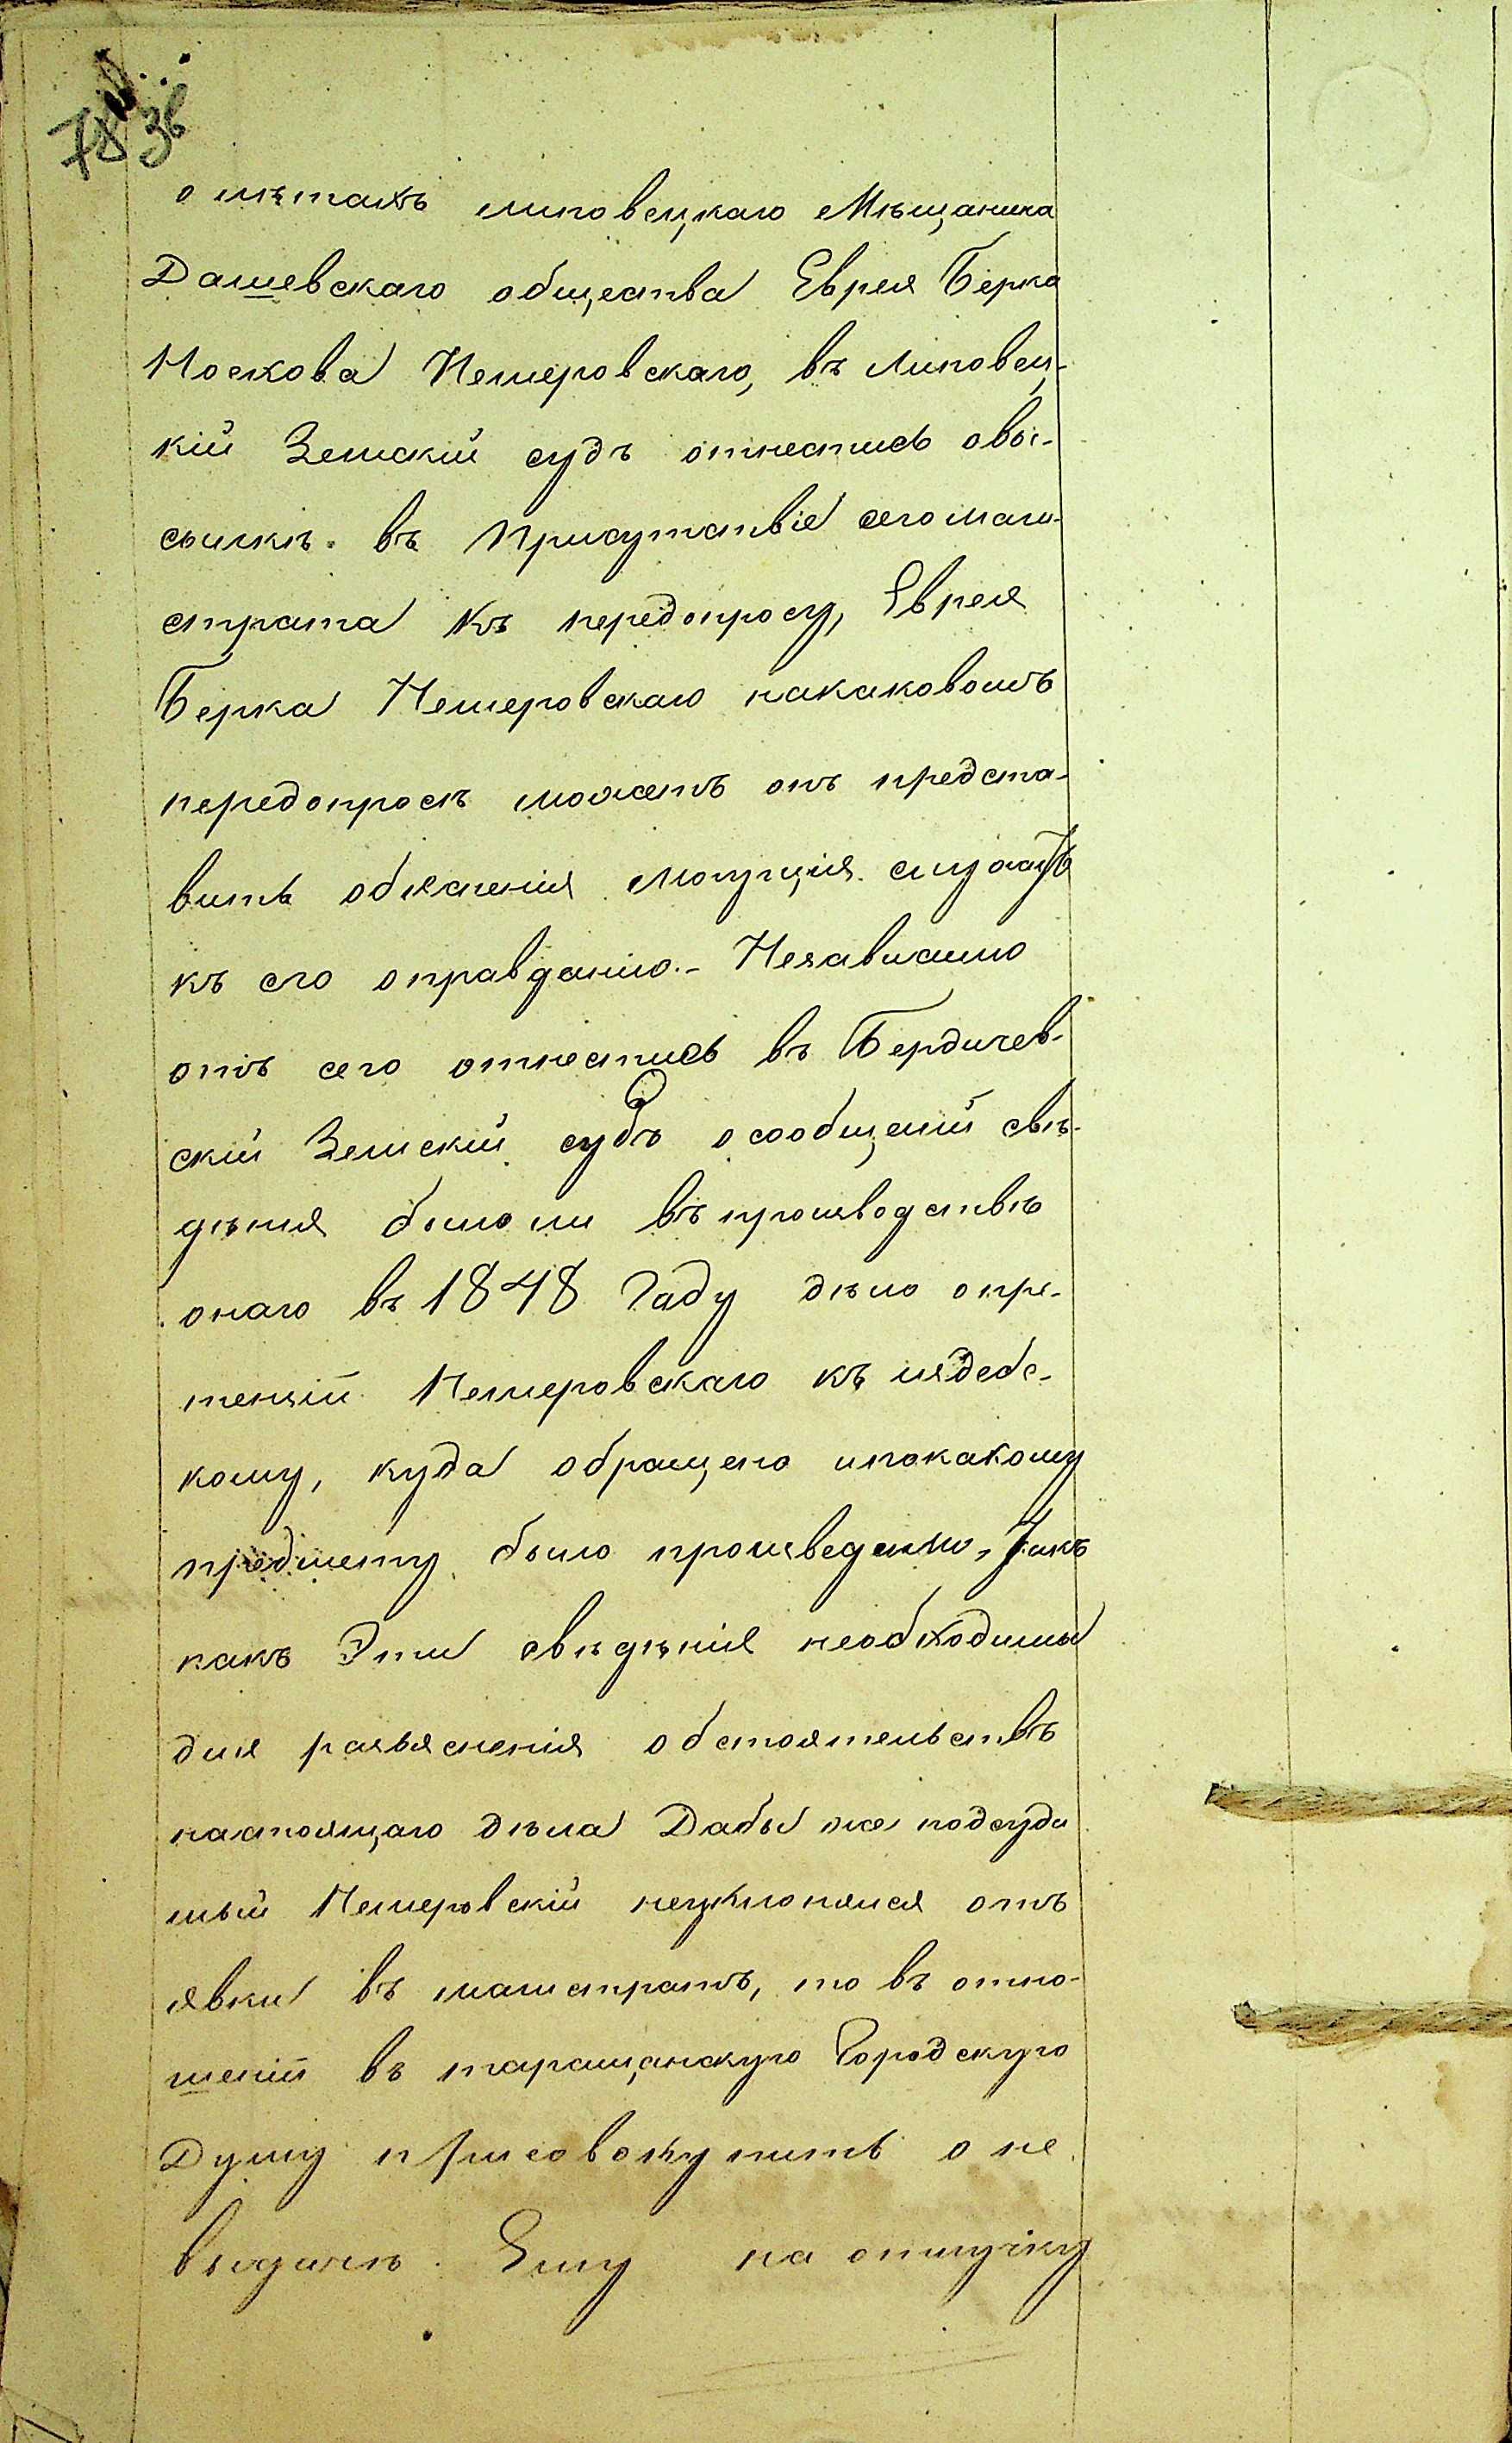 о лѣтахъ липовецкаго Мѣщанина
Дашевскаго общества Еврея Берка
Носкова Немеровскаго, въ Липовец-
кій Земскій судъ отнестись овы-
сылкѣ въ присутствіе сего маги-
страта къ передопросу, Еврея
Берка Немеровскаго накаковомъ
передопросѣ можетъ онъ предста-
вить обясненія могущія служить
къ его оправданію.- Независимо
отъ сего отнестись въ Бердичев-
скій Земскій судъ осообщеніи свѣ-
дѣнія было ли въпроизводствѣ
онаго въ 1848 Году дѣло опре-
тензіи Немеровскаго къ
кому, куда обращено ипокакому
предмету было произведено, Такъ
какъ Эти свѣдѣнія необходимы
для разъясненія обстоятельствъ
настоящаго дѣла Дабы же подсуди
мый Немеровскій неуклонялся отъ
явки въ магистратъ, то въ отно-
шеніи въ таращанскую Городскую
Думу присовокупить о не
выдачѣ Ему на отлучку